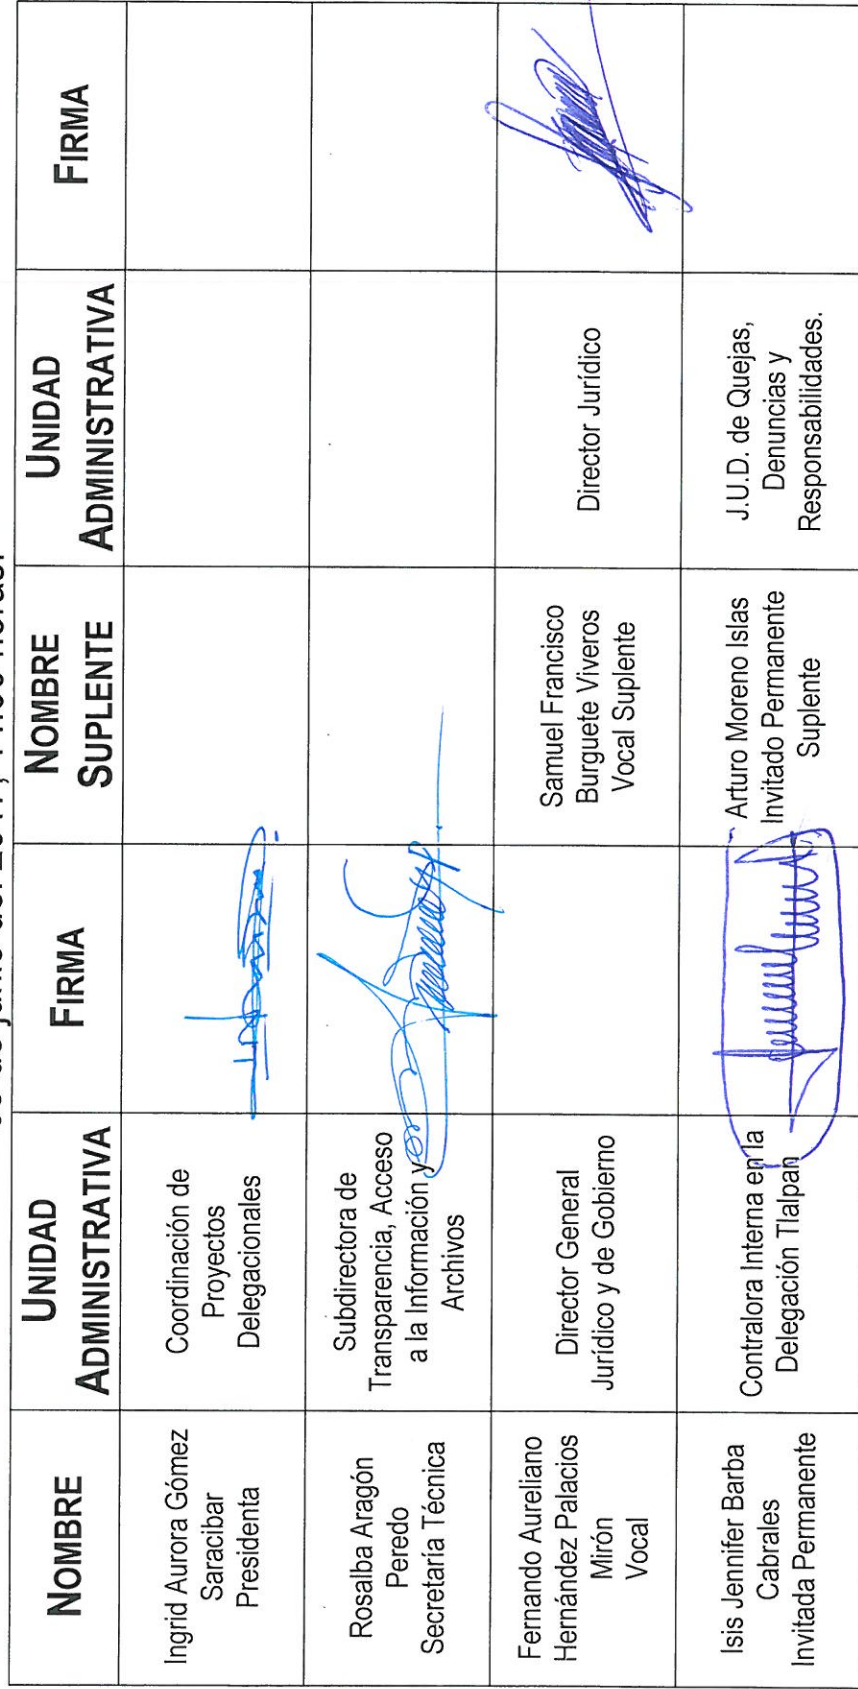 NOMBRE
UNIDAD
ADMINISTRATIVA
FIRMA
NOMBRE
SUPLENTE
UNIDAD
ADMINISTRATIVA
FIRMA
Ingrid Aurora Gómez
Saracibar
Presidenta
Coordinación de
Proyectos
Delegacionales
Rosalba Aragón
Peredo
Secretaría Técnica
Subdirectora de
Transparencia, Acceso
a la Información y
Archivos
Fernando Aureliano
Hernández Palacios
Mirón
Vocal
Director General
Jurídico y de Gobierno
Samuel Francisco
Burguete Viveros
Vocal Suplente
Director Jurídico
Isis Jennifer Barba
Cabrales
Invitada Permanente
Contralora Interna en la
Delegación Tlalpan
Arturo Moreno Islas
Invitado Permanente
Suplente
J.U.D. de Quejas,
Denuncias y
Responsabilidades.